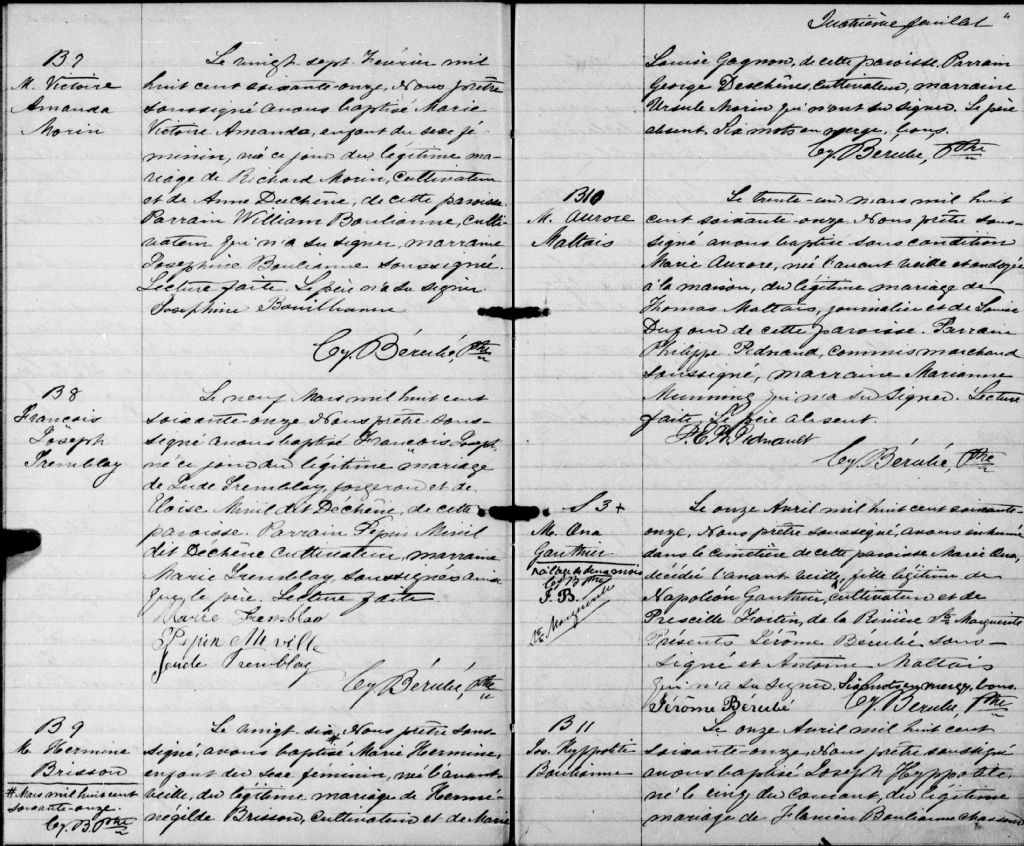 B7
M. Victoire
Amanda
Morin
Le vingt sept Février mil
huit cent soixante-onze, Nous prêtre
soussigné avons baptisé Marie
Victoire Amanda, enfant du sexe fé-
minin, née ce jour du légitime ma-
riage de Richard Morin, Cultivateur
et de Anne Duchêne, de cette paroisse.
Parrain William Boulianne, culti-
vateur qui n'a su signer, marraine
Josephine Boulianne soussignée.
Lecture faite. Le père n'a su signer
Joséphine Bouillianne
Cy. Bérubé, Ptre
B8
François
Joseph
Tremblay
Le neuf Mars mil huit cent
soixante-onze, Nous prêtre sous-
signé avons baptisé François Joseph,
né ce jour du légitime mariage
de Jude Tremblay, forgeron et de
Eloise Mivil dit Dechêne, de cette
paroisse. Parrain Pépin Mivil
dit Dechêne Cultivateur, marraine
Marie Tremblay, soussignés ainsi
que le père. Lecture faite.
Marie Tremblay
Pepin Miville
Jude Tremblay
Cy. Bérubé, Ptre
B9
M. Hermine
Brisson
# Mars mil huit cent
soixante-onze.
Cy. B. Ptre
Le vingt six # Nous prêtre sous-
signé avons baptisé Marie Hermine,
enfant du sexe féminin, née l'avant
veille, du légitime mariage de Hermé-
négilde Brisson, Cultivateur et de Marie
Quatrième feuillet
Louise Gagnon, de cette paroisse. Parrain
George Deschênes, Cultivateur, marraine
Ursule Morin qui n'ont su signer. Le père
absent. Six mots en marge, bons.
Cy. Bérubé, Ptre
B10
M. Aurore
Maltais
Le trente-un mars mil huit
cent soixante-onze. Nous prêtre sous-
signé avons baptisé sous condition
Marie Aurore, née l'avant veille et ondoyée
à la maison, du légitime mariage de
Thomas Maltais, journalier et de Louise
Dufour de cette paroisse. Parrain
Philippe Pednaud, Commis marchand
soussigné, marraine Marianne
qui n'a su signer. Lecture
faite. Le père absent.
Pednault
Cy. Bérubé, Ptre
S 3 +
M. Ona
Gauthier
à l'âge de deux mois
Cy. B. Ptre
J. B.
Ste Marguerite
Le onze Avril mil huit cent soixante-
onze, Nous prêtre soussigné, avons inhumé
dans le cimetière de cette paroisse Marie Ona,
décédée l'avant veille, fille légitime de
Napoléon Gauthier, Cultivateur et de
Prescille Fortin, de la Rivière Ste Marguerite
Présents Jérôme Bérubé sous-
signé et Antoine Maltais
qui n'a su signer. Six mots en marge, bons.
Jérôme Bérubé
Cy. Bérubé, Ptre
B11
Jos. Hyppolite
Boulianne
Le onze Avril mil huit cent
soixante-onze, Nous prêtre soussigné
avons baptisé Joseph Hyppolite,
né le cinq du courant, du légitime
mariage de Flavien Boulianne chasseur